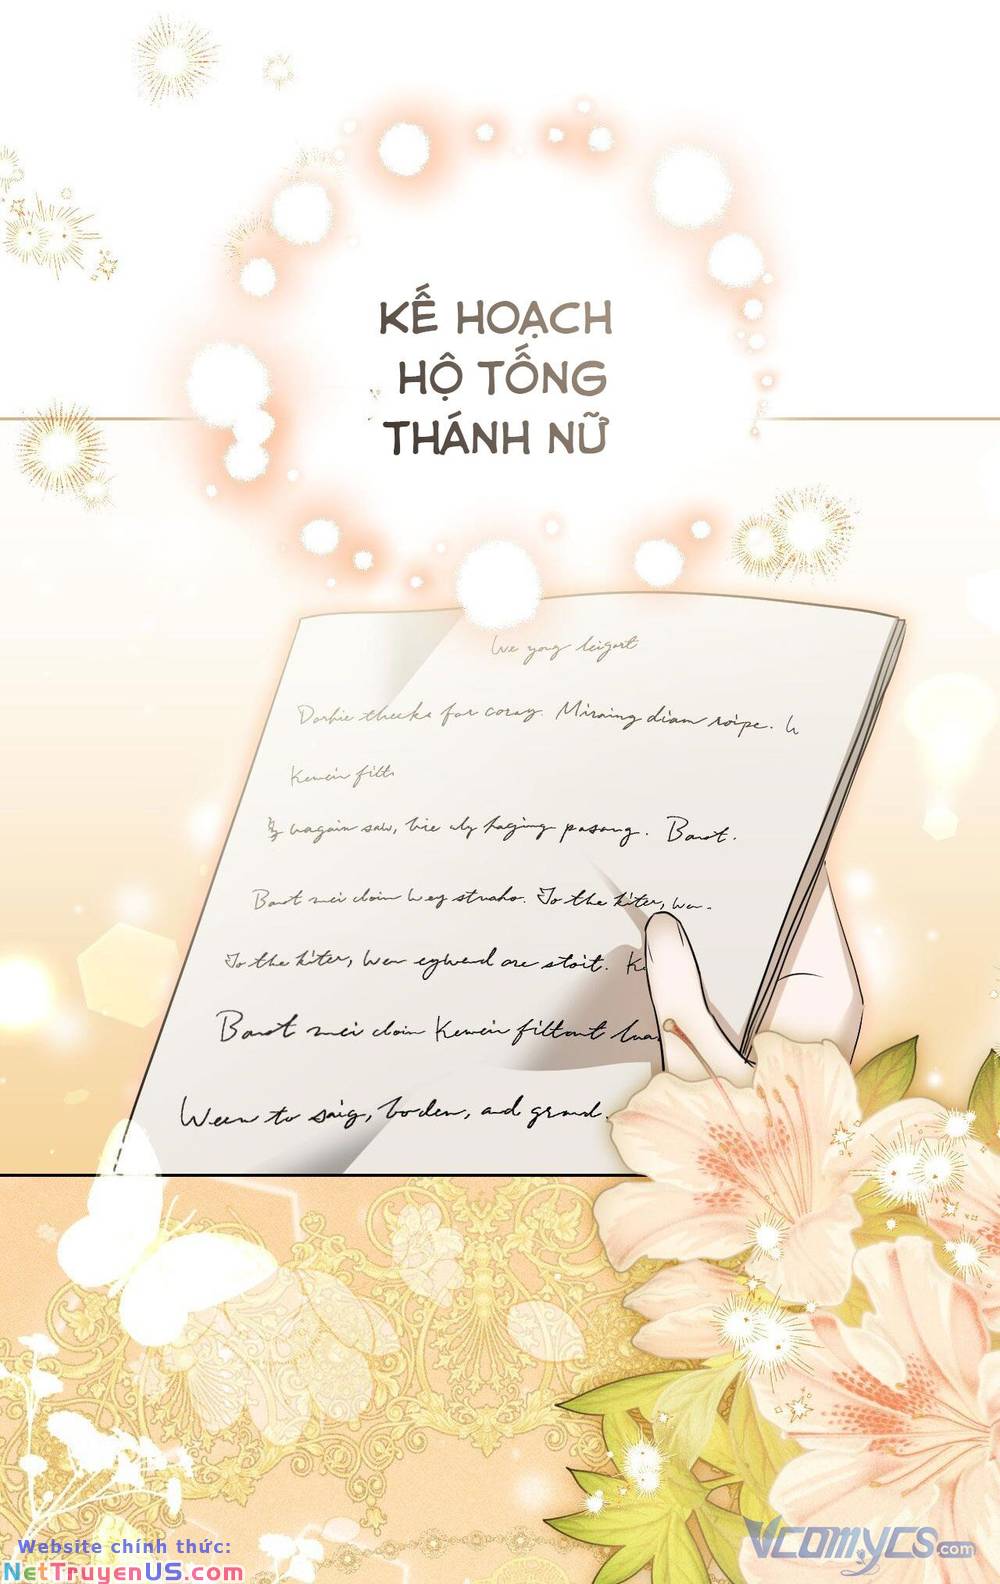 KẾ HOẠCH
HỘ TỐNG
THÁNH NỮ
We yong leigart
for coray. Miraing diam roipe.
Kewein filt
saw, bie uly haging pasang. Barot.
Barot mei cloin Wey struaho. To the kiter, Wen.
To the kiter, Wen are stoit.
Barot mei cloin Kewein filtont
Ween to saig, boden, and grand.
Website chính thức:
NetTruyenUS.com
Vcomycs.com